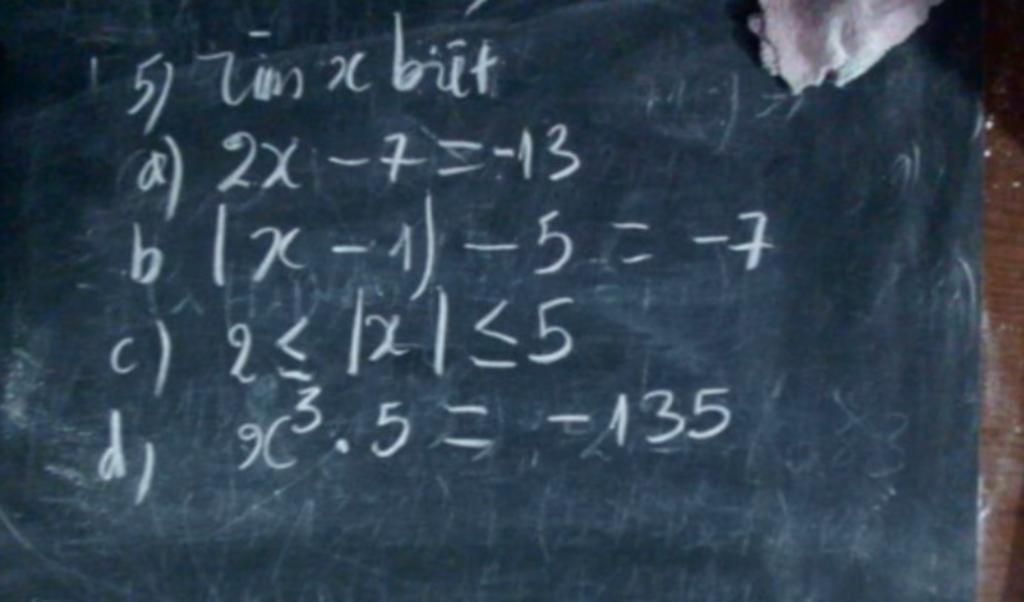 5) Tìm x biết
a) 2x - 7 = -13
b |x - 1| - 5 = -7
c) 2 ≤ |x| ≤ 5
d, x³ . 5 = -135